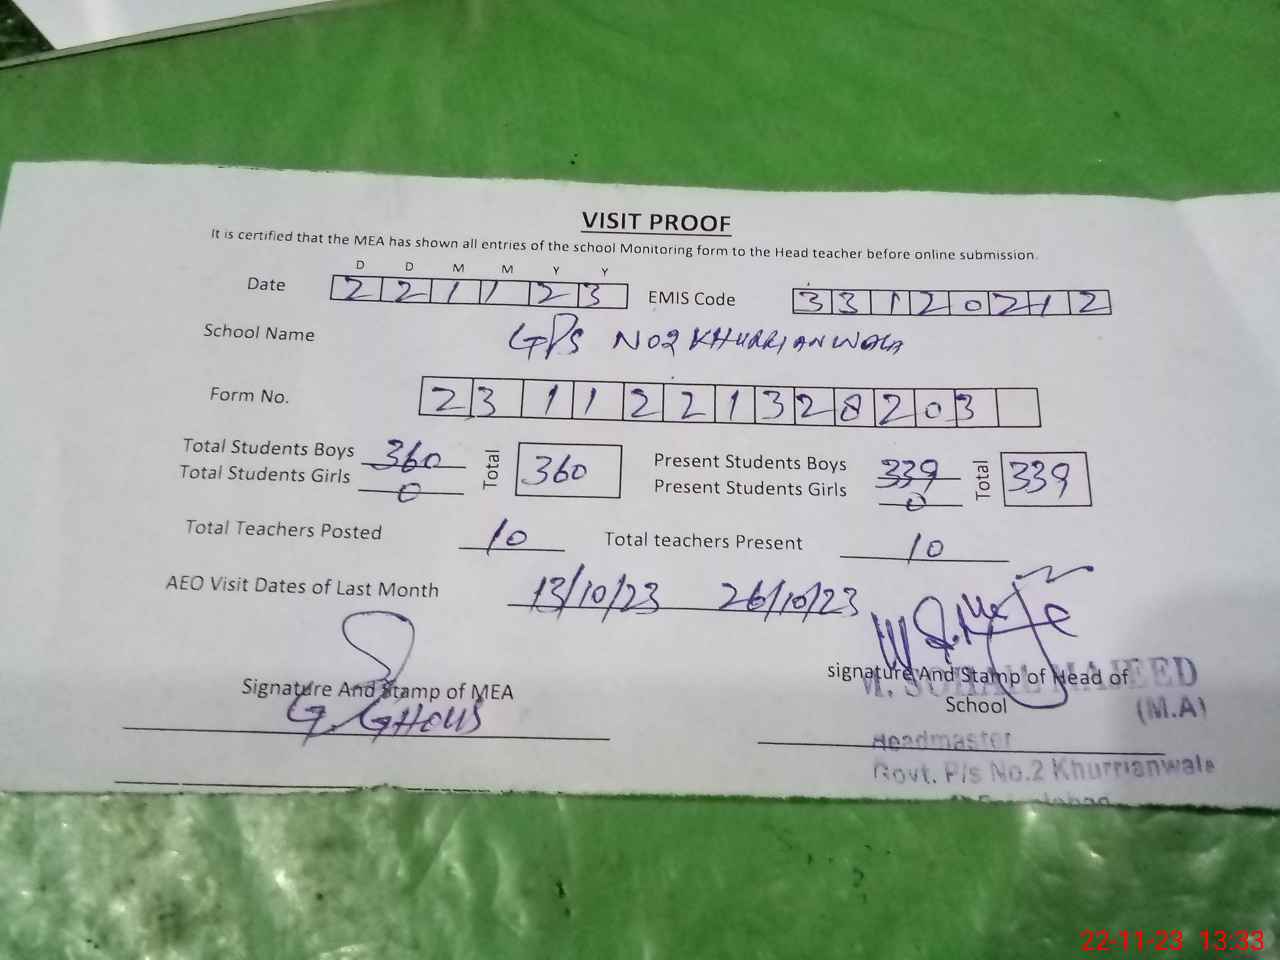 VISIT PROOF
It is certified that the MEA has shown all entries of the school Monitoring form to the Head teacher before online submission.
D D M M Y Y
Date 2 2 1 1 2 3 EMIS Code 3 3 1 2 0 2 1 2
School Name GPS NO2 KHURRIANWALA
Form No. 2 3 1 1 2 2 1 3 2 8 2 0 3
Total Students Boys 360 Total 360 Present Students Boys 339 Total 339
Total Students Girls 0 Present Students Girls 0
Total Teachers Posted 10 Total teachers Present 10
AEO Visit Dates of Last Month 13/10/23 26/10/23
Signature And Stamp of MEA signature And Stamp of Head of
School
G. GHOUS
M. SOHAIL MAJEED
(M.A)
Headmaster
Govt. P/s No.2 Khurrianwala
22-11-23 13:33